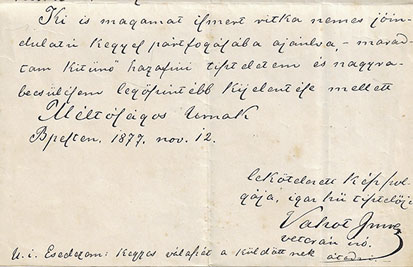 Ki is magamat ismert ritka nemes jóin-
dulatú kegyes pártfogásába ajánlva, – marad-
tam kitünő hazafiui tiszteletem és nagyra-
becsülésem legőszintébb kijelentése mellett
Méltóságos Urnak
Bpesten, 1877. nov. 12.
lekötelezett kész szol-
gája, igaz hű tisztelője
Vahot Imre
veterán író.
U. i. Esedezem: kegyes válaszát a küldöttnek átadni.